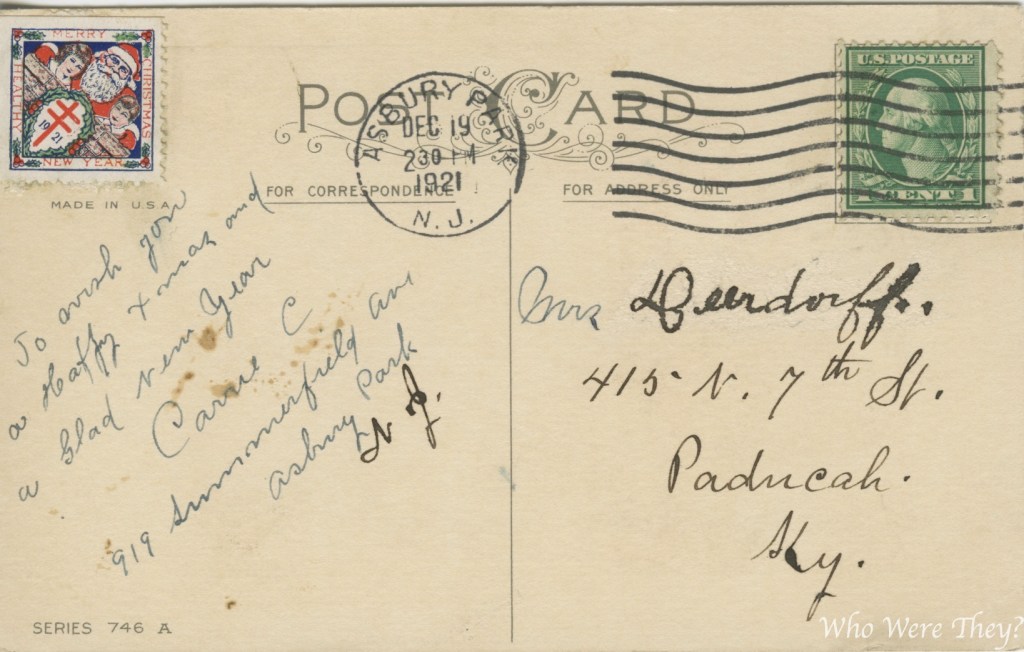 MERRY
CHRISTMAS
HEALTH
19 21
NEW YEAR
POST CARD
ASBURY PARK
DEC 19
2 30 PM
1921
N. J.
U.S. POSTAGE
1 CENT 1
FOR CORRESPONDENCE
FOR ADDRESS ONLY
MADE IN U.S.A.
To wish you
a Happy Xmas and
a Glad New Year
Carrie C
919 Summerfield Ave
Asbury Park
N J.
Mrs Deerdorff.
415 N. 7th St.
Paducah.
Ky.
SERIES 746 A
Who Were They?